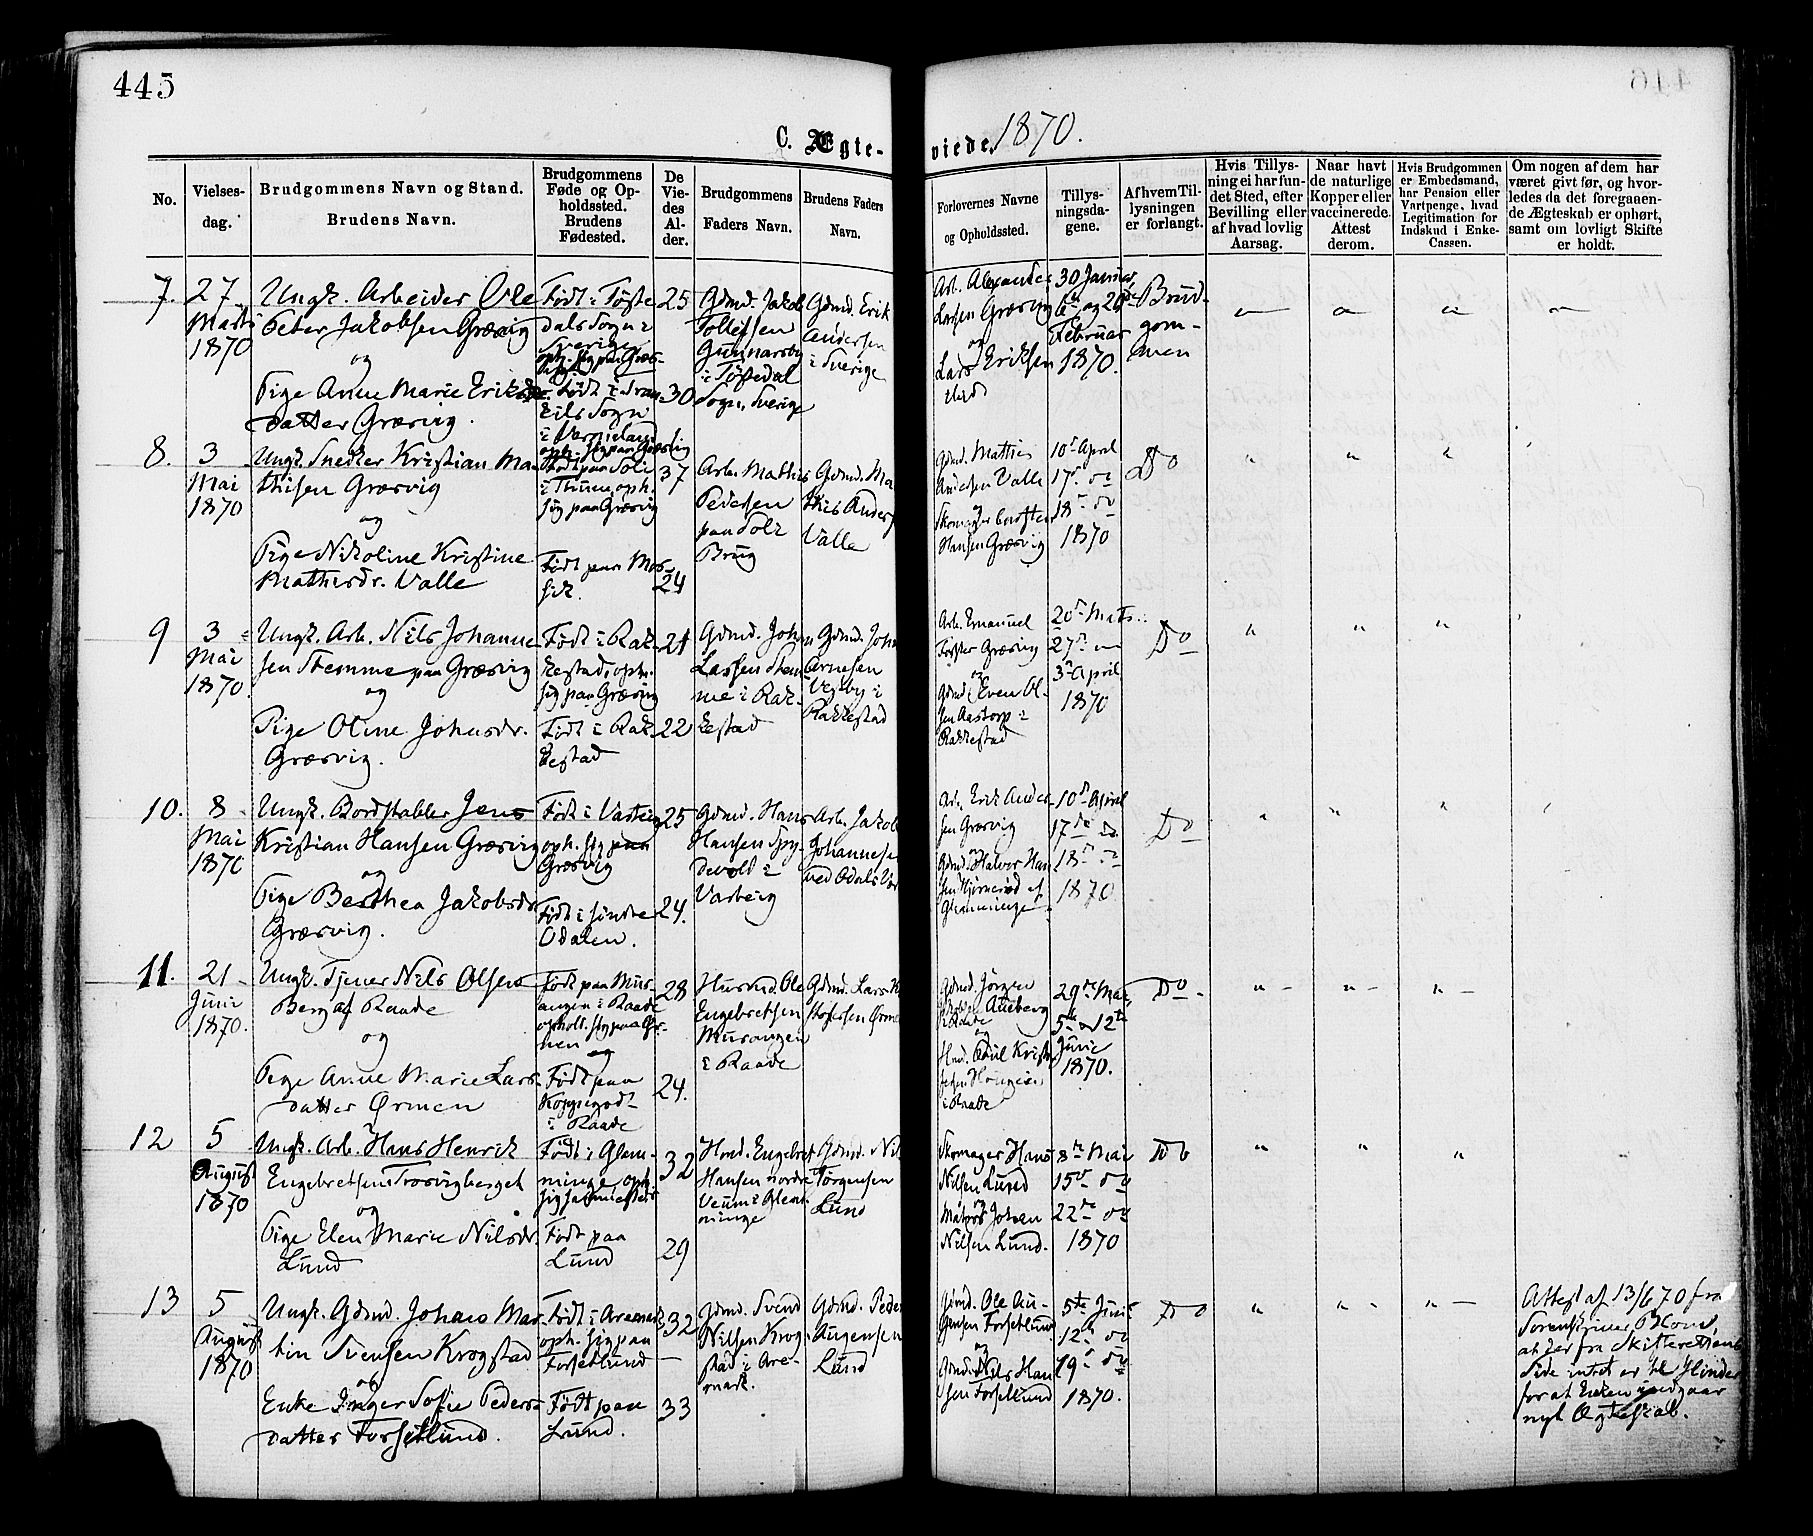 445
C. Ægte-viede. 1870.
No.
Vielses-
dag.
Brudgommens Navn og Stand.
Brudens Navn.
Brudgommens
Føde og Op-
holdssted.
Brudens
Fødested.
De
Vie-
des
Al-
der.
Brudgommens
Faders Navn.
Brudens Faders
Navn.
Forlovernes Navne
og Opholdssted.
Tillys-
ningsda-
gene.
Af hvem Til-
lysningen
er forlangt.
Hvis Tillys-
ning ei har fun-
det Sted, efter
Bevilling eller
af hvad lovlig
Aarsag.
Naar havt
de naturlige
Kopper eller
vaccinerede.
Attest
derom.
Hvis Brudgommen
er Embedsmand,
har Pension eller
Vartpenge, hvad
Legitimation for
Indskud i Enke-
Cassen.
Om nogen af dem har
været givt før, og hvor-
ledes da det foregaaen-
de Ægteskab er ophørt,
samt om lovligt Skifte
er holdt.
7.
27
Marts
1870
Ungk. Arbeider Ole
Peter Jakobsen Græsvig
og
Pige Anne Marie Eriks
datter Græsvig.
Født i Töfte
dals Sogn i
Sverige
25
30
Gdmd. Jakob
Tollefsen
Gunnarsby
i Töftedal
Sogn, Sverige
Gdmd. Erik
Andersen
i Sverige
Arb. Alexander
Larsen Græsvig
og
Lars Eriksen
30 Januar
6te og 20de
Februar
1870.
Brud-
gom-
men
8.
3
Mai
1870
Ungk. Snedker Kristian Ma
thisen Græsvig
og
Pige Nikoline Kristine
Mathisdr. Valle
Født paa Soli
i Thune, oph.
sig paa Græsvig
Født paa Mos-
sik.
37
24
Arb. Mathis
Pedersen
paa Soli
Brug
Gdmd. Ma
this Anders
Valle
Gdmd. Mathis
Andersen Valle
og
Skomager
Hansen Græsvig
10de April
17de do
18de do
1870
Do
9
3
Mai
1870.
Ungk. Arb. Nils Johanne
sen Stemme paa Græsvig
og
Pige Oline Johnsdr.
Græsvig.
Født i Rak-
kestad, oph.
sig paa Græsvig
Født i Rak-
kestad
21
22
Gdmd. Johan
Larsen Stem
me i Rak-
kestad
Gdmd. John
Arnesen
Vejby i
Rakkestad
Arb. Emanuel
Græsvig
og
Gdmd. Even Ol-
sen Aastorp i
Rakkestad
20de Marts
27de
3de April
1870
Do
10.
8
Mai
1870
Ungk. Bordstabler Jens
Kristian Hansen Græsvig
og
Pige Berthea Jakobsdr
Græsvig.
Født i Varteig
oph. sig paa
Græsvig
Født i søndre
Odalen.
25
24.
Gdmd. Hans
Hansen Spy-
devold i
Varteig
Arb. Jakob
Johannese
ved Odals Vær
Arb. Erik Ander-
sen Græsvig
og
Gdmd. Halvor Han
sen af
Glemminge
10de April
17de do
18de do
1870
Do
11.
21
Juni
1870.
Ungk. Tjener Nils Olsen
Berg af Raade
og
Pige Anne Marie Lars-
datter Ørmen
Født paa Mus-
angen i Raade
ophol. sig paa Ør-
men
og
Født paa
Koppegod-
i Raade
28
24.
Husmd. Ole
Engebretsen
Musangen
i Raade
Gdmd. Lars K
stofersen Ørme
Gdmd. Jørgen
Aneberg
i Raade
og
Hmd. Paul Krist
i Raade
29de Mai,
5te og 12te
Juni
1870.
Do
12
5
August
1870
Ungk. Arb. Hans Henrik
Engebretsen Trosvigberget
og
Pige Elen Marie Nilsdr.
Lund
Født i Glem-
minge, oph.
Født paa
Lund
32
29
Hmd. Engebret
Hansen nordre
Veum i Glem-
minge
Gdmd. Nil
Jørgensen
Lund
Skomager Hans
Nilsen Lund
og
Matros Johan
Nilsen Lund.
8de Mai
15de do
22de do
1870
Do
13
5
August
1870
Ungk. Gdmd. Johans Mar-
tin Svensen Krogstad
og
Enke Inger Sofie Peders-
datter Forsetlund.
Født i Aremark
oph. sig paa
Forsetlund
Født paa
Lund.
32
33
Gdmd. Svend
Nilsen Krog-
stad i Are-
mark.
Gdmd. Peder
Augensen
Lund
Gdmd. Ole Au-
gensen Forsetlund
og
Gdmd. Nils Han
sen Forsetlund
5te Juni
12te do
19de do
1870.
Do
Attest af 13/6 70 fra
Sorenskriver
at der fra Skifterettens
Side intet er til Hinder
for at Enken indgaar
nyt Ægteskab.